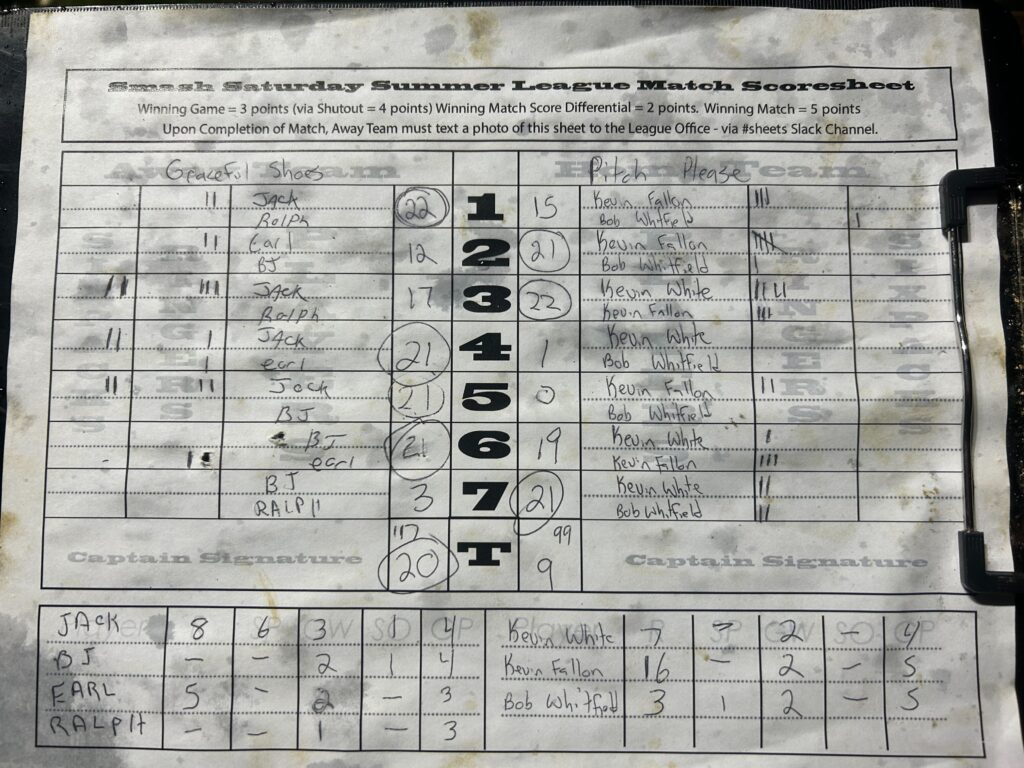 Smash Saturday Summer League Match Scoresheet
Winning Game = 3 points (via Shutout = 4 points) Winning Match Score Differential = 2 points. Winning Match = 5 points
Upon Completion of Match, Away Team must text a photo of this sheet to the League Office - via #sheets Slack Channel.
Away Team Home Team
Gpaceful Shoes Pitch Please
|| JACK 22 1 15 Kevin Fallon |||
Ralph Bob Whitfield |
|| Earl 12 2 21 Kevin Fallon ||||
BJ Bob Whitfield |
|| ||| JACK 17 3 22 Kevin White ||||
Ralph Kevin Fallon |||
|| | JACK 21 4 1 Kevin White
| earl Bob Whitfield
|| || Jack 21 5 0 Kevin Fallon ||
BJ Bob Whitfield
BJ 21 6 19 Kevin White |
|| earl Kevin Fallon |||
BJ 3 7 21 Kevin White ||
RALPH Bob Whitfield ||
117 99
Captain Signature 20 T 9 Captain Signature
JACK 8 6 3 1 4 Kevin White 7 2 - 4
BJ - - 2 1 4 Kevin Fallon 16 - 2 - 5
EARL 5 - 2 - 3 Bob Whitfield 3 1 2 - 5
RALPH - - 1 - 3